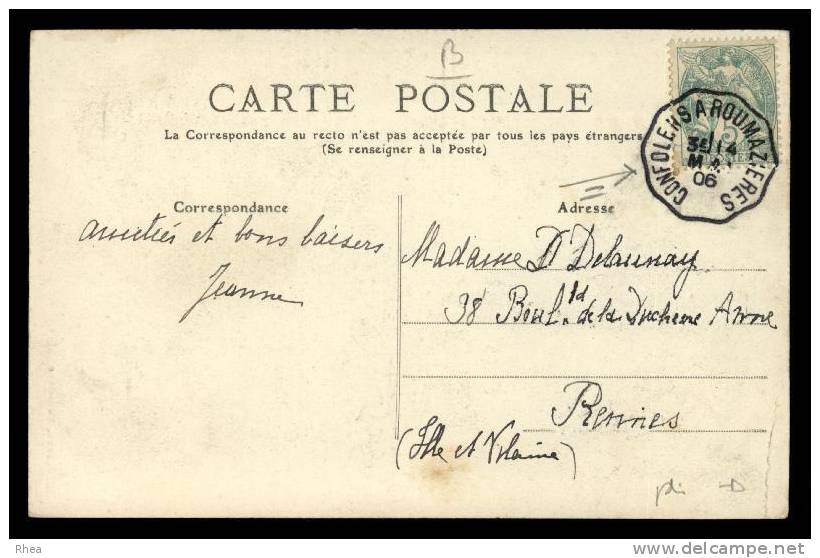 B
CARTE POSTALE
La Correspondance au recto n'est pas acceptée par tous les pays étrangers
(Se renseigner à la Poste)
CONFOLENS A ROUMAZIERES
14
06
Correspondance
Adresse
amitiés et bons baisers
Jeanne
Madame D Delaunay
38 Boul.rd de la Duchesse Anne
Rennes
(Ille et Vilaine)
pli
Rhea
www.delcampe.net